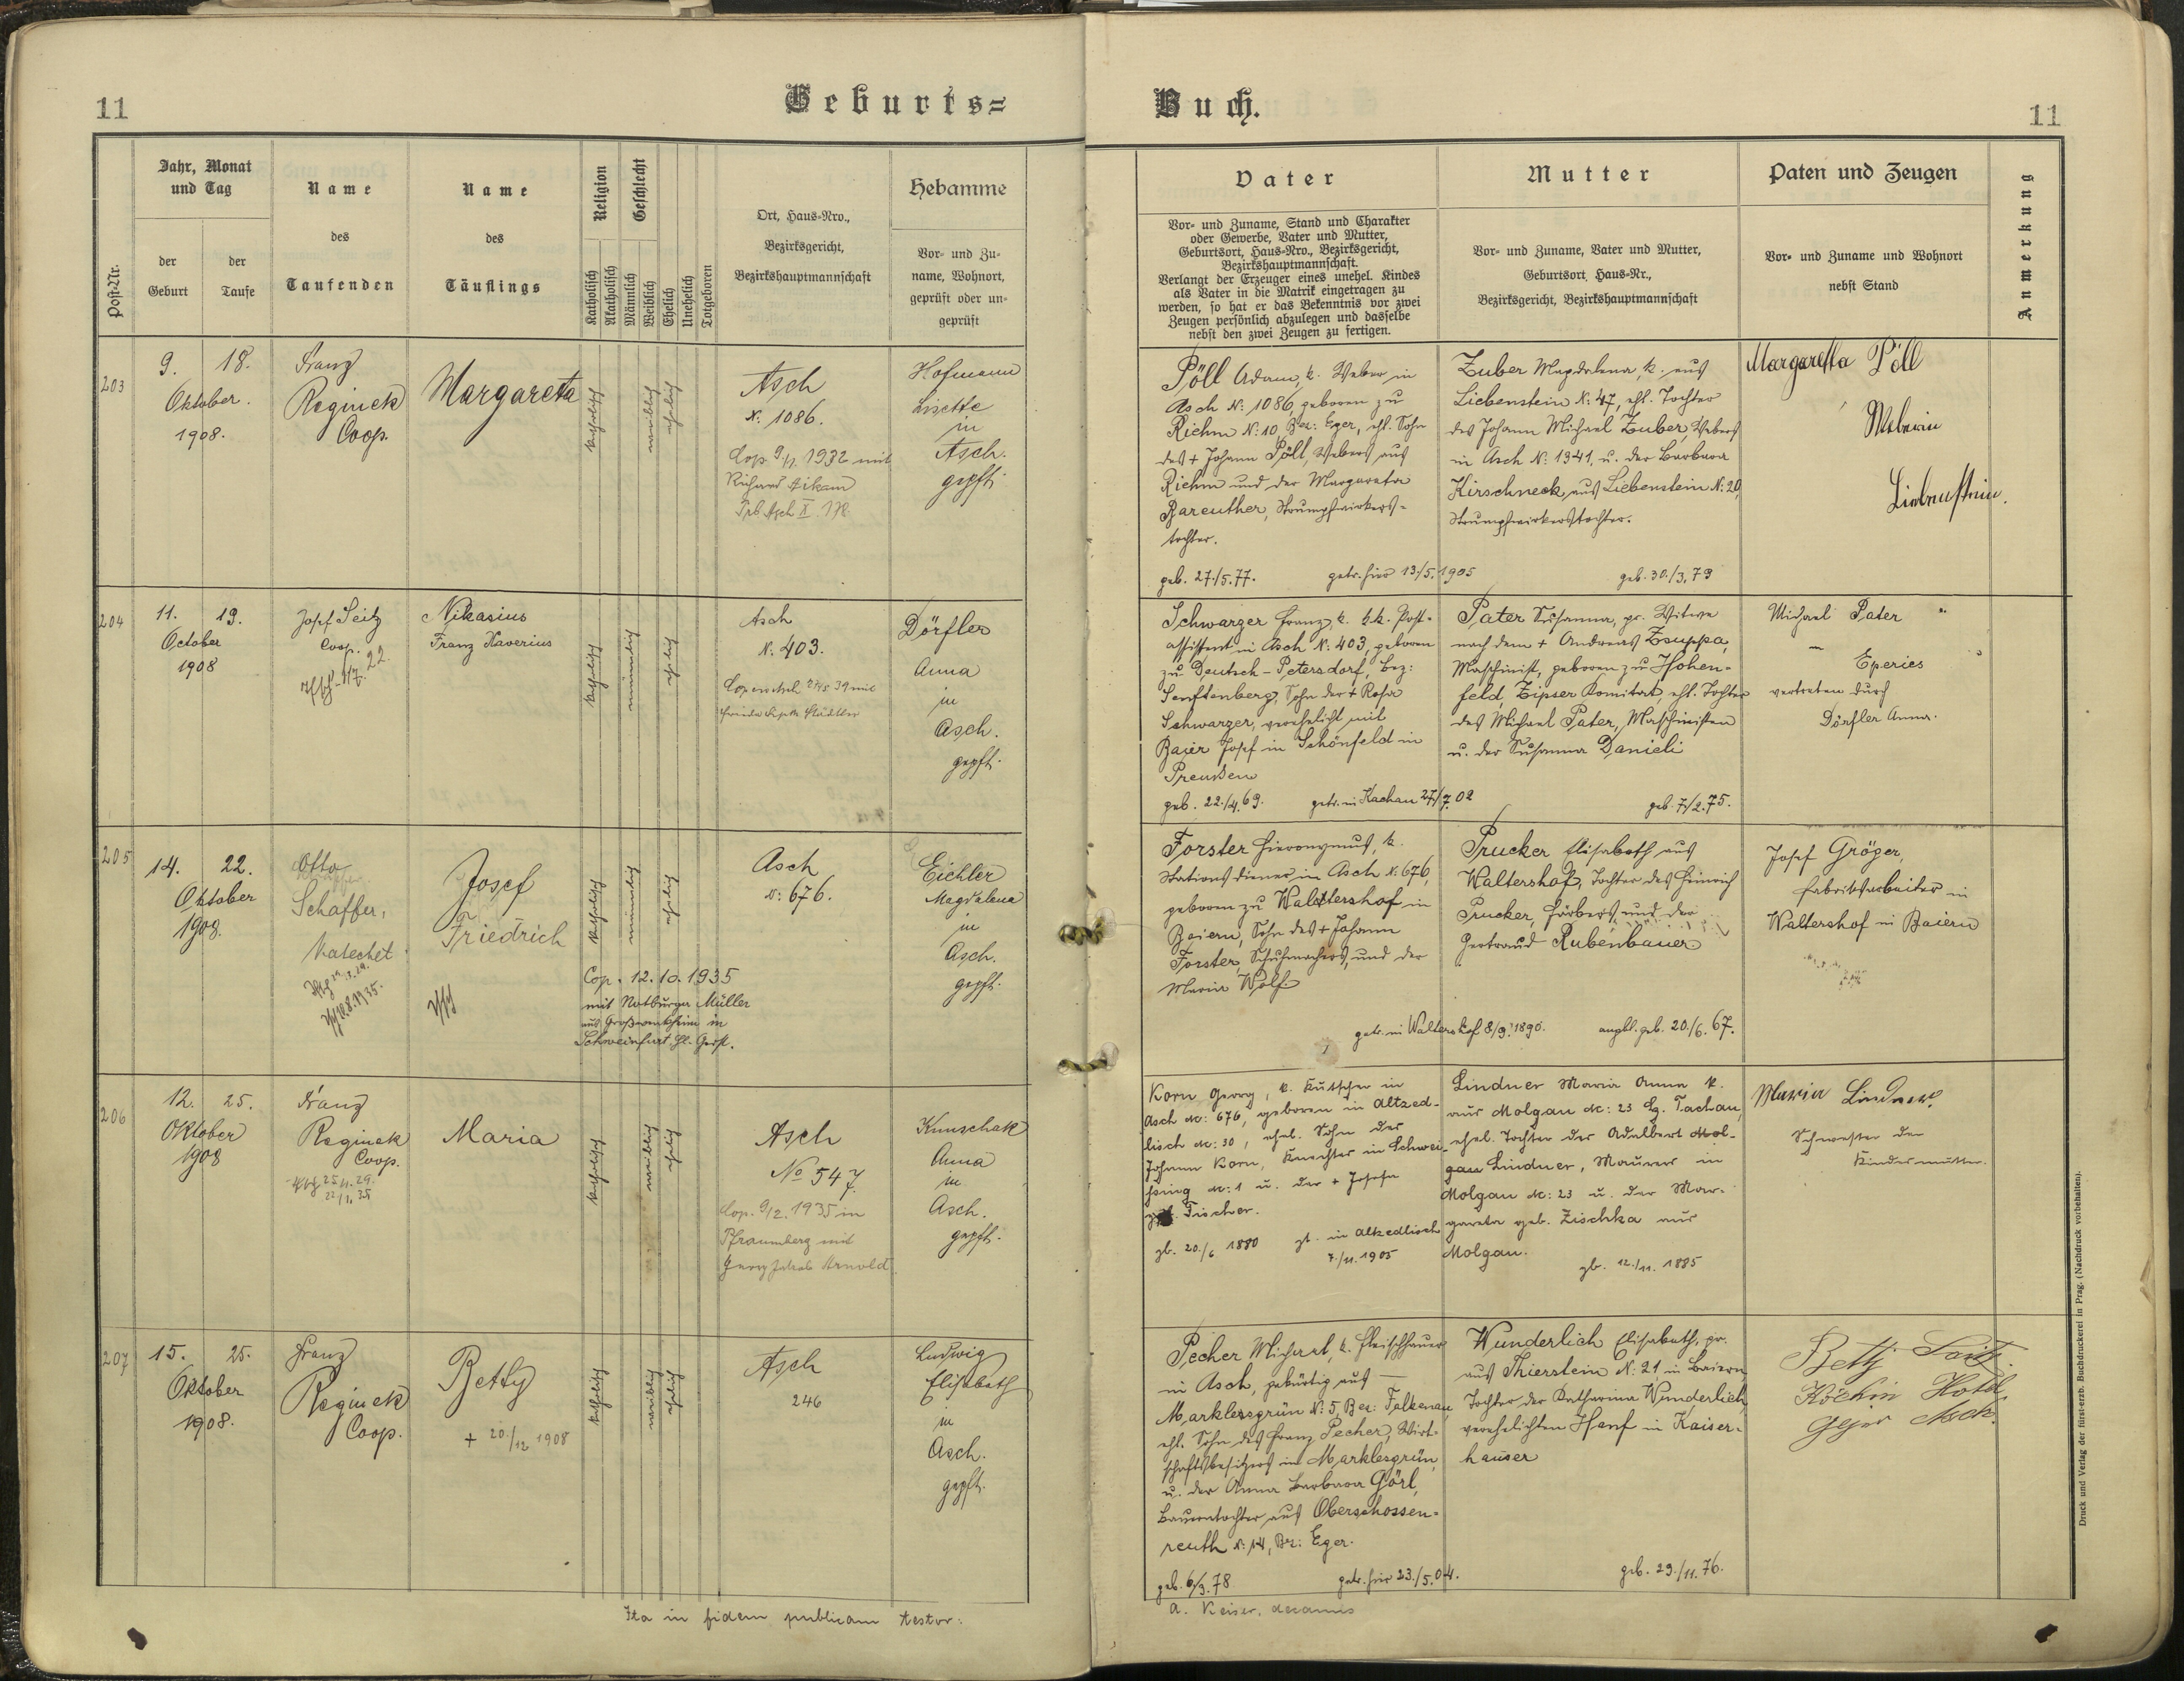 11
Geburts=
Jahr, Monat
und Tag
Post-Nr.
der
Geburt
der
Taufe
Name
des
Taufenden
Name
des
Täuflings
Religion
Geschlecht
Katholisch
Akatholisch
Männlich
Weiblich
Ehelich
Unehelich
Totgeboren
Ort, Haus-Nro.,
Bezirksgericht,
Bezirkshauptmannschaft
Hebamme
Vor- und Zu-
name, Wohnort,
geprüft oder un-
geprüft
203
9. 18.
Oktober.
1908.
Franz
Reginek
Coop.
Margareta
katholisch
weiblich
ehelich
Asch
N: 1086.
Cop. 9/7. 1932 mit
Richard
Trb Asch X. 178
Hofmann
Lisette
in
Asch.
gepft.
204
11. 19.
October
1908
Josef Seitz
Coop.
Nikasius
Franz Xaverius
katholisch
männlich
ehelich
Asch
N: 403.
39 mit
Dörfler
Anna
in
Asch.
gepft.
205
14. 22.
Oktober
1908.
Otto
Schaffer,
Katechet
10.8.1935.
Josef
Friedrich
katholisch
männlich
ehelich
Cop. 12.10.1935
mit Notburga Müller
aus Großwenkheim in
Schweinfurt Hl. Geist.
Asch
N: 676.
Eichler
Magdalena
in
Asch.
gepft.
206
12. 25.
Oktober
1908
Franz
Reginek
Coop.
Maria
katholisch
weiblich
ehelich
Asch
No 547.
Cop. 9/2. 1935 in
Pfraumberg mit
Georg Jakob Arnold.
Knuschak
Anna
in
Asch.
gepft.
207
15. 25.
Oktober
1908.
Franz
Reginek
Coop.
Betty
+ 20./12 1908
katholisch
weiblich
ehelich
Asch
246
Ludwig
Elisabeth
in
Asch.
gepft.
Ita in fidem publicam testor:
Buch.
11
Vater
Vor- und Zuname, Stand und Charakter
oder Gewerbe, Vater und Mutter,
Geburtsort, Haus-Nro., Bezirksgericht,
Bezirkshauptmannschaft.
Verlangt der Erzeuger eines unehel. Kindes
als Vater in die Matrik eingetragen zu
werden, so hat er das Bekenntnis vor zwei
Zeugen persönlich abzulegen und dasselbe
nebst den zwei Zeugen zu fertigen.
Mutter
Vor- und Zuname, Vater und Mutter,
Geburtsort, Haus-Nr.,
Bezirksgericht, Bezirkshauptmannschaft
Paten und Zeugen
Vor- und Zuname und Wohnort
nebst Stand
Anmerkung
Pöll Adam, k. Weber in
Asch N: 1086, geboren zu
Riehm N: 10 Bez: Eger, ehl. Sohn
des + Johann Pöll, Webers aus
Riehm und der Margareta
Bareuther, Strumpfwirkers-
tochter.
geb. 27./5.77. getr. hier 13./5. 1905
Zuber Magdalena, k. aus
Liebenstein N: 47, ehl. Tochter
des Johann Michael Zuber, Webers
in Asch N: 1341, u. der Barbara
Hirschneck, aus Liebenstein N: 20,
Strumpfwirkerstochter.
geb. 30./3. 79
Margaretta Pöll
Weberin
Liebenstein.
Schwarzer Franz, k. k.k. Post-
assistent in Asch N: 403, geboren
zu Deutsch-Petersdorf, Bez:
Senftenberg, Sohn der + Rosa
Schwarzer, verehelicht mit
Baier Josef in Schönfeld in
Preußen
geb. 22./4. 69. getr. in Kachau 27/7. 02
Pater Susanna, pr. Witwe
nach dem + Andreas Zsuppa,
Maschinist, geboren zu Hohen-
feld, Zipser Komitat, ehl. Tochter
des Michael Pater, Maschinisten
u. der Susanna Danieli
geb. 7./2. 75.
Michael Pater
Eperies
vertreten durch
Dörfler Anna.
Forster Hieronymus, k.
Stationsdiener in Asch N: 676,
geboren zu Waltershof in
Baiern, Sohn des + Johann
Forster, Schuhmachers, und der
Maria Wolf.
getr. in Waltershof 8/9. 1890.
Prucker Elisabeth aus
Waltershof, Tochter des Heinrich
Prucker, Färbers, und der
Gertraud Rubenbauer
angbl. geb. 20./6. 67.
Josef Gröger,
Fabriksarbeiter in
Waltershof in Baiern
Korn Georg, k. Kutscher in
Asch N: 676, geboren in Altzed-
lisch N: 30, ehel. Sohn des
Johann Korn, Knechtes in Schwei-
ssing N: 1 u. der + Josefa
Fischer.
gb. 20./6 1880 gt. in Altzedlisch
7./11. 1905
Lindner Maria Anna k.
aus Molgau N: 23 Bz. Tachau,
ehel. Tochter des Adalbert Mol-
gau Lindner, Maurers in
Molgau N: 23 u. der Mar-
gareta geb. Zischka aus
Molgau.
gb. 12./11. 1885
Maria Lindner.
Schwester der
Kindesmutter.
Pecher Michael, k. Fleischhauer
in Asch, gebürtig aus —
Marklesgrün N: 5, Bez: Falkenau
ehl. Sohn des Franz Pecher, Wirt-
schaftsbesitzers in Marklesgrün,
u. der Anna Barbara Görl,
Bauerntochter aus Oberschossen-
reuth N: 14, Bz: Eger.
geb. 6/3. 78 getr. hier 23./5. 04.
Wunderlich Elisabeth, pr.
aus Thierstein N: 21, in Baiern,
Tochter der Katharina Wunderlich,
verehelichten Hanf in Kaiser-
häuser
geb. 29./11. 76.
Betty
Köchin Hotel
Geyer Asch.
A. Keiser, decanus
Druck und Verlag der fürst-erzb. Buchdruckerei in Prag. (Nachdruck vorbehalten).